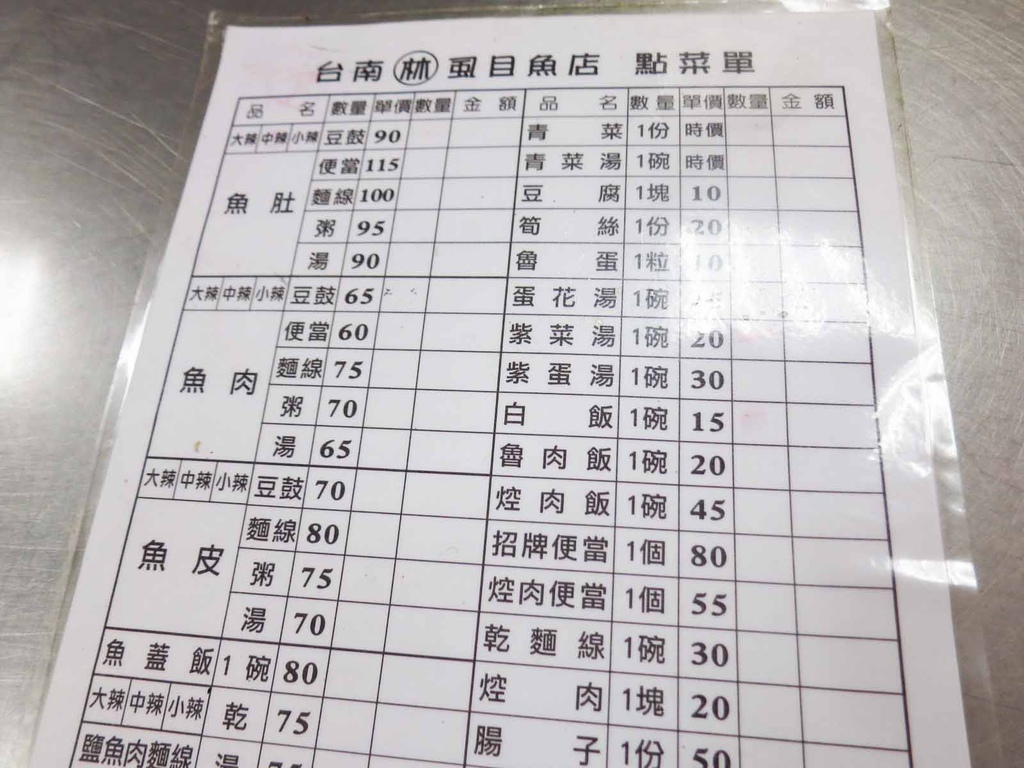 台南林虱目魚店 點菜單
品名 數量 單價 數量 金額 品名 數量 單價 數量 金額
大辣 中辣 小辣 豆鼓 90 青菜 1份 時價
便當 115 青菜湯 1碗 時價
魚肚 麵線 100 豆腐 1塊 10
粥 95 筍絲 1份 20
湯 90 魯蛋 1粒 10
大辣 中辣 小辣 豆鼓 65 蛋花湯 1碗
便當 60 紫菜湯 1碗 20
魚肉 麵線 75 紫蛋湯 1碗 30
粥 70 白飯 1碗 15
湯 65 魯肉飯 1碗 20
大辣 中辣 小辣 豆鼓 70 焢肉飯 1碗 45
魚皮 麵線 80 招牌便當 1個 80
粥 75 焢肉便當 1個 55
湯 70 乾麵線 1碗 30
魚蓋飯 1碗 80 焢肉 1塊 20
大辣 中辣 小辣 乾 75 腸子 1份 50
鹽魚肉麵線 湯